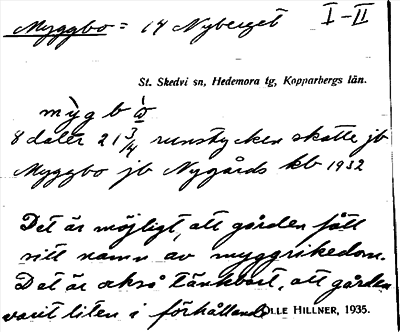 Myggbo = 14 Nyberget I-II
St. Skedvi sn, Hedemora tg, Kopparbergs län.
mỳg b ò
8 daler 21 3/4 runstycken skatte jb
Myggbo jb Nygårds kb 1932
Det är möjligt, att gården fått
sitt namn av myggrikedom.
Det är också tänkbart, att gården
varit liten i förhållande
OLLE HILLNER, 1935.